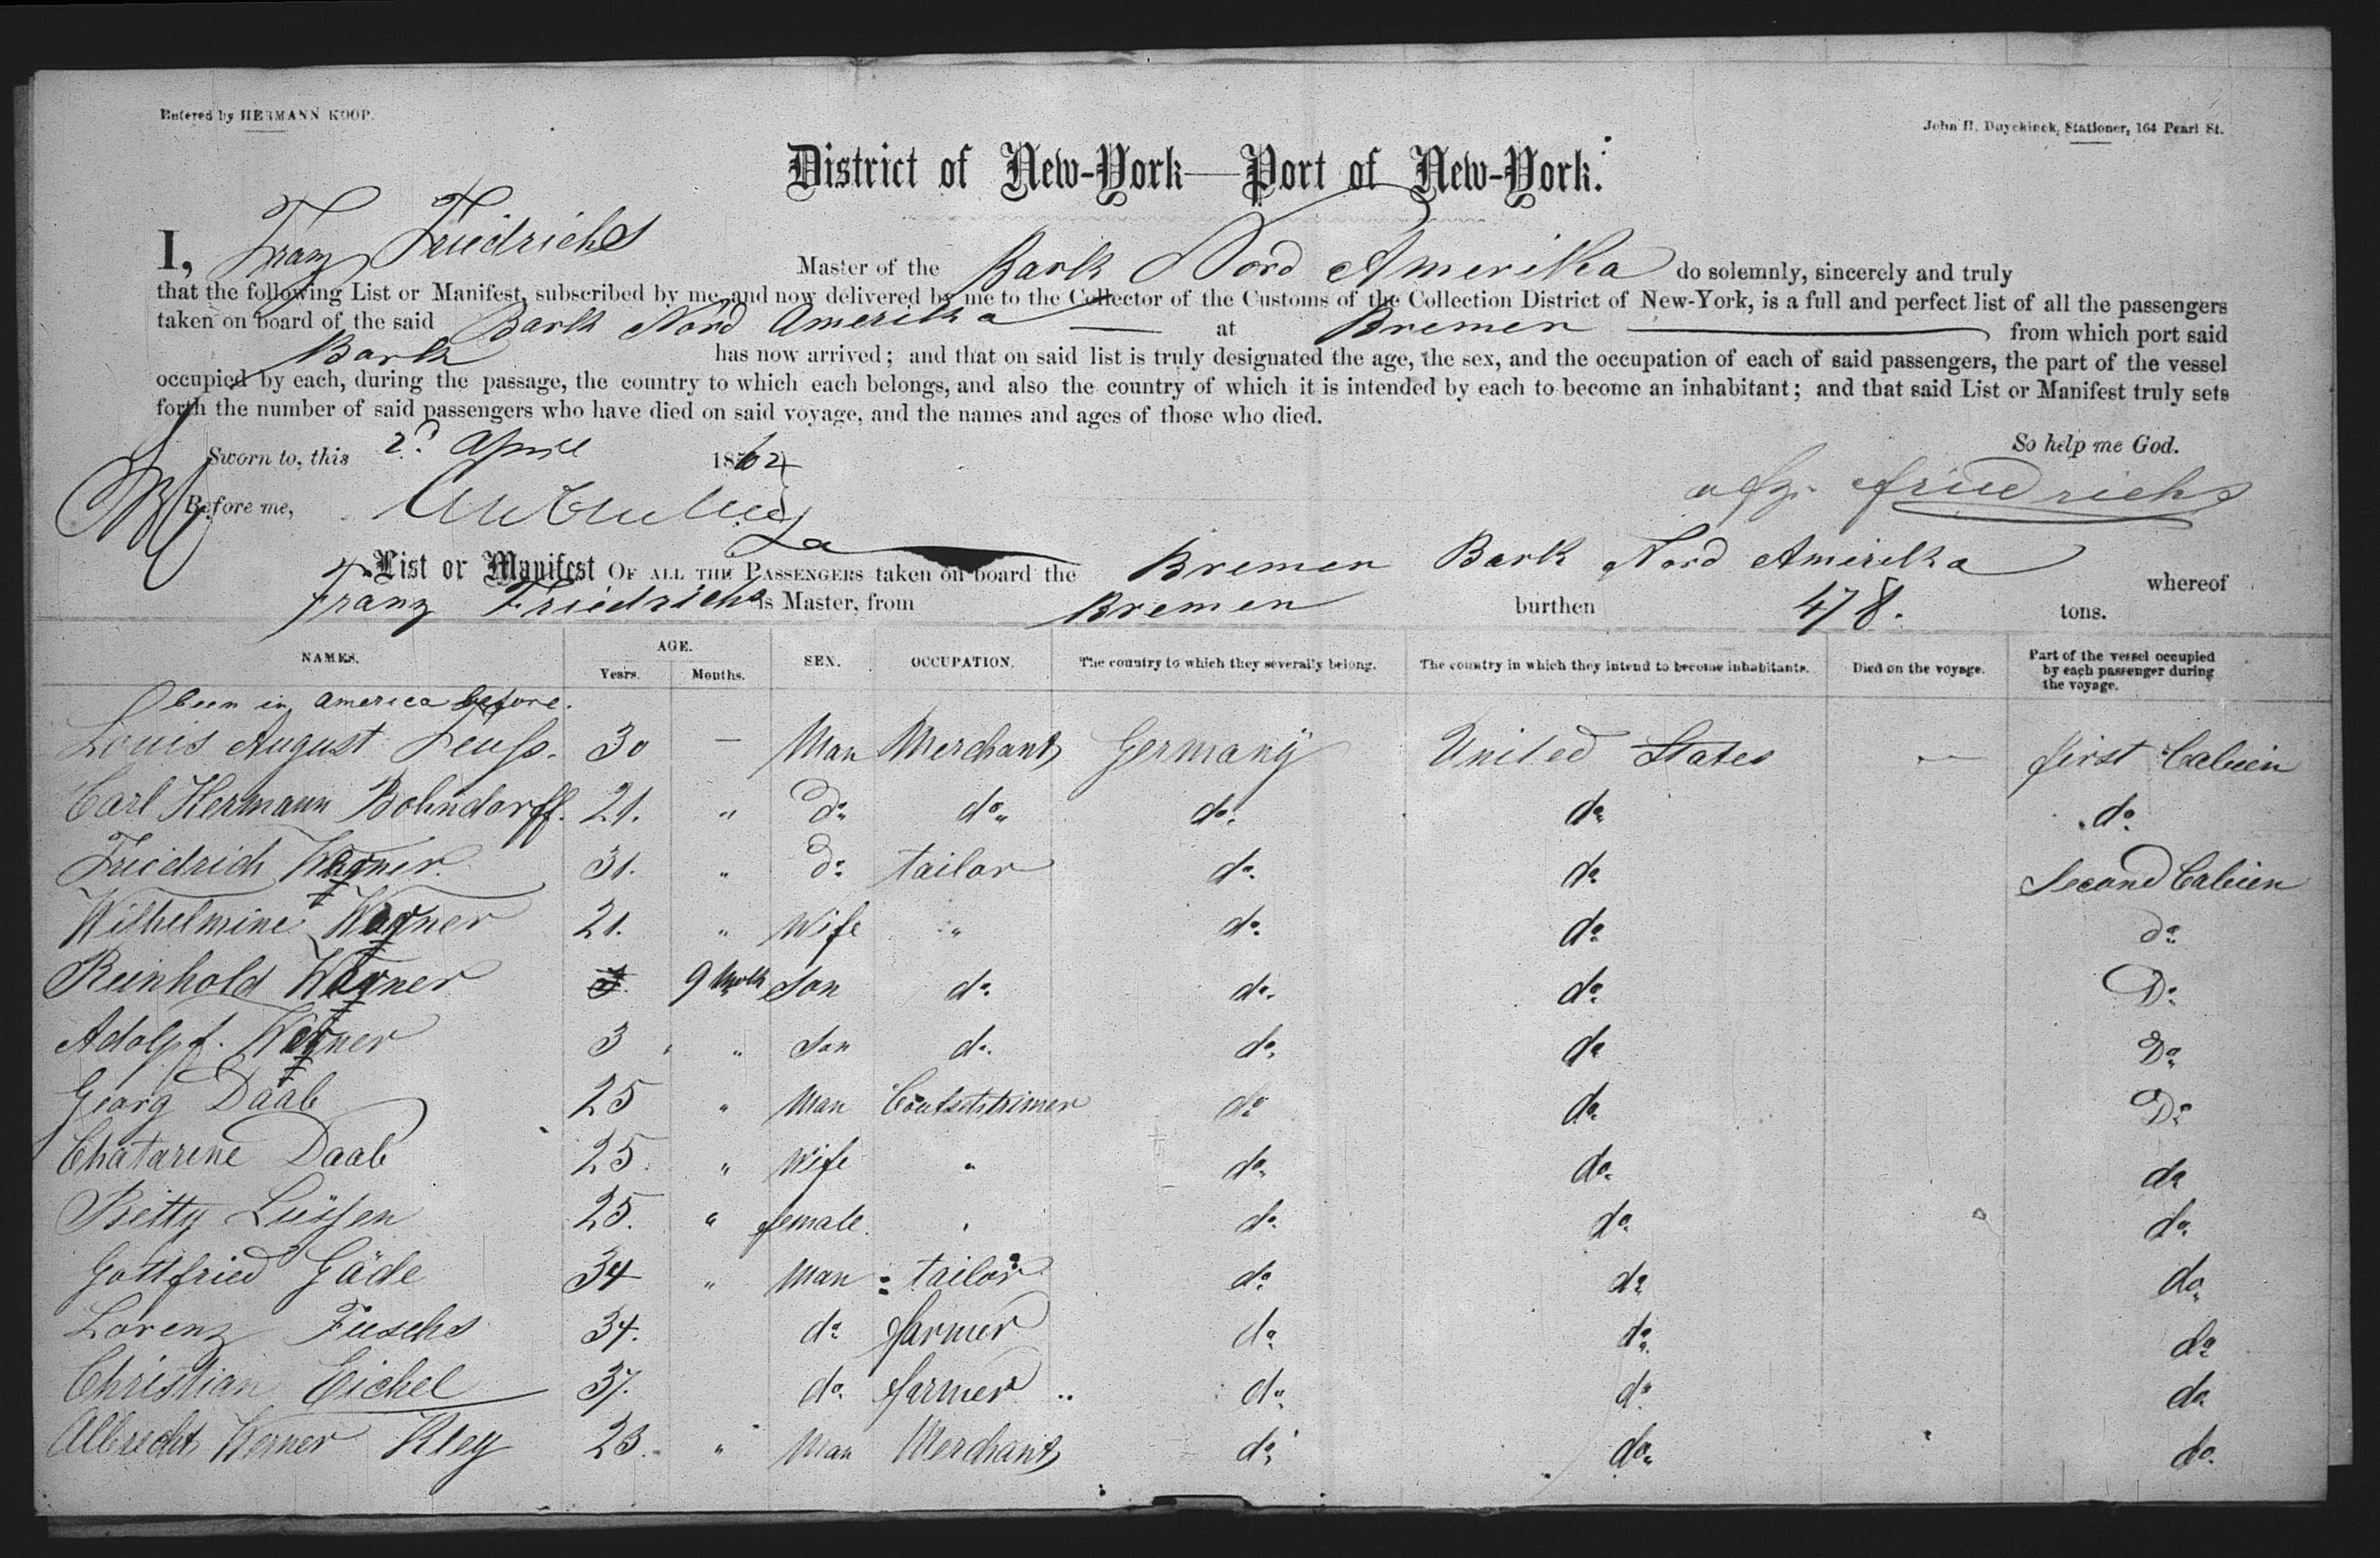 Entered by HERMANN KOOP.
John H. Duyckinck, Stationer, 164 Pearl St.
District of New-York—Port of New-York.
I, Franz Friedrichs Master of the Bark Nord Amerika do solemnly, sincerely and truly
that the following List or Manifest, subscribed by me, and now delivered by me to the Collector of the Customs of the Collection District of New-York, is a full and perfect list of all the passengers
taken on board of the said Bark Nord Amerika — at Bremen — from which port said
Bark has now arrived; and that on said list is truly designated the age, the sex, and the occupation of each of said passengers, the part of the vessel
occupied by each, during the passage, the country to which each belongs, and also the country of which it is intended by each to become an inhabitant; and that said List or Manifest truly sets
forth the number of said passengers who have died on said voyage, and the names and ages of those who died.
So help me God.
Sworn to, this 2d April 1864
Before me,
Friedrichs
List or Manifest OF ALL THE PASSENGERS taken on board the Bremen Bark Nord Amerika whereof
Franz Friedrichs is Master, from Bremen burthen 478. tons.
NAMES. AGE. Years. Months. SEX. OCCUPATION. The country to which they severally belong. The country in which they intend to become inhabitants. Died on the voyage. Part of the vessel occupied by each passenger during the voyage.
been in America before.
Louis August Leuss. 30 — Man Merchant Germany United States — first Cabien
Carl Hermann Bohndorff. 21. " do do do do do
Friedrich Wagner. 31. " do tailor do do Second Cabien
Wilhelmine Wagner 21. " Wife " do do do
Reinhold Wagner 9 Mnth Son do do do Do
Adolpf. Wagner 3 " Son do do do Do
Georg Daab 25 " Man do do Do
Chatarine Daab 25. " Wife " do do do
Betty Lüssen 25. " female do do do
Gottfried Gäde 34 " Man tailor do do do
Lorenz Fuschs 34. do farmer do do do
Christian Eichel 37. do farmer do do do
Albrecht Werner Kley 23. " Man Merchant do do do